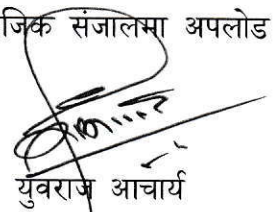 जिक संजालमा अपलोड
युवराज आचार्य